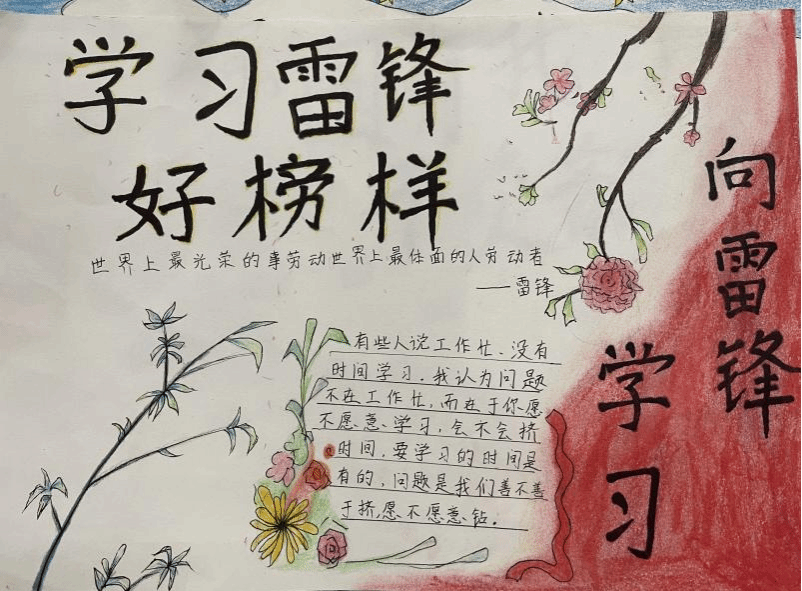 学习雷锋
好榜样
世界上最光荣的事劳动世界上最体面的人劳动者
——雷锋
有些人说工作忙、没有
时间学习，我认为问题
不在工作忙，而在于你愿
不愿意学习，会不会挤
时间，要学习的时间是
有的，问题是我们善不善
于挤，愿不愿意钻。
向雷锋
学习